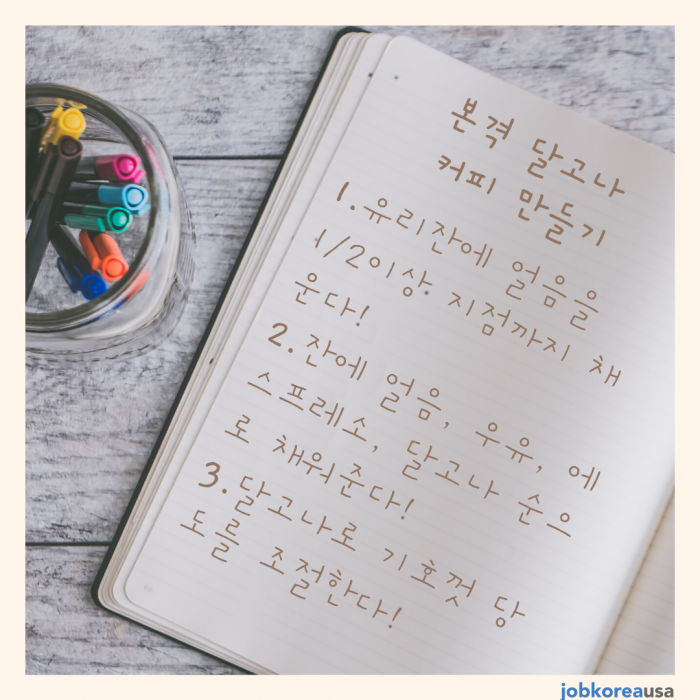 본격 달고나
커피 만들기
1. 유리잔에 얼음을
1/2이상 지점까지 채
운다!
2. 잔에 얼음, 우유, 에
스프레소, 달고나 순으
로 채워준다!
3. 달고나로 기호껏 당
도를 조절한다!
jobkoreausa